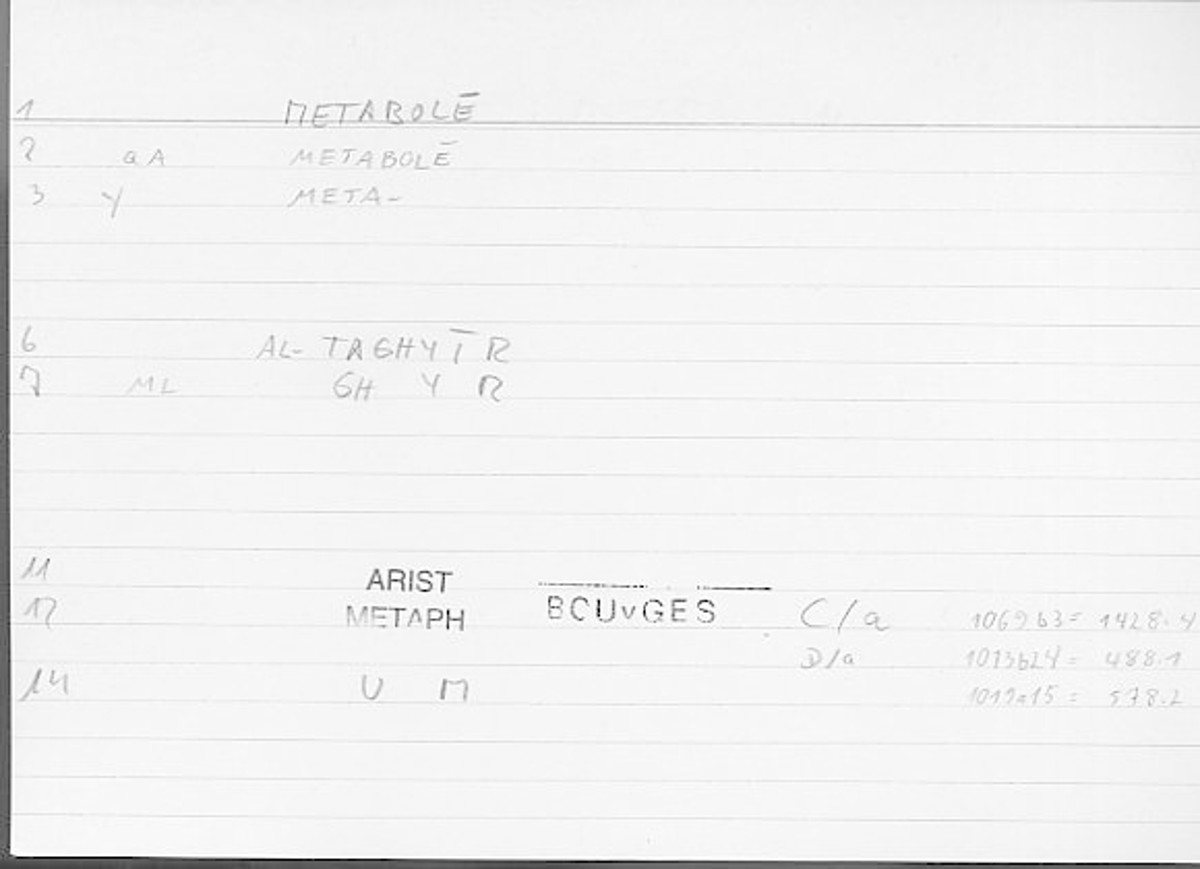 1 METABOLĒ
2 aA METABOLĒ
3 Y META-
6 AL- TAGHYĪR
7 ML GH Y R
11 ARIST
12 METAPH BOUYGES C/a 1069b3= 1428.4
D/a 1013b24= 488.1
14 U M 1019a15= 578.2